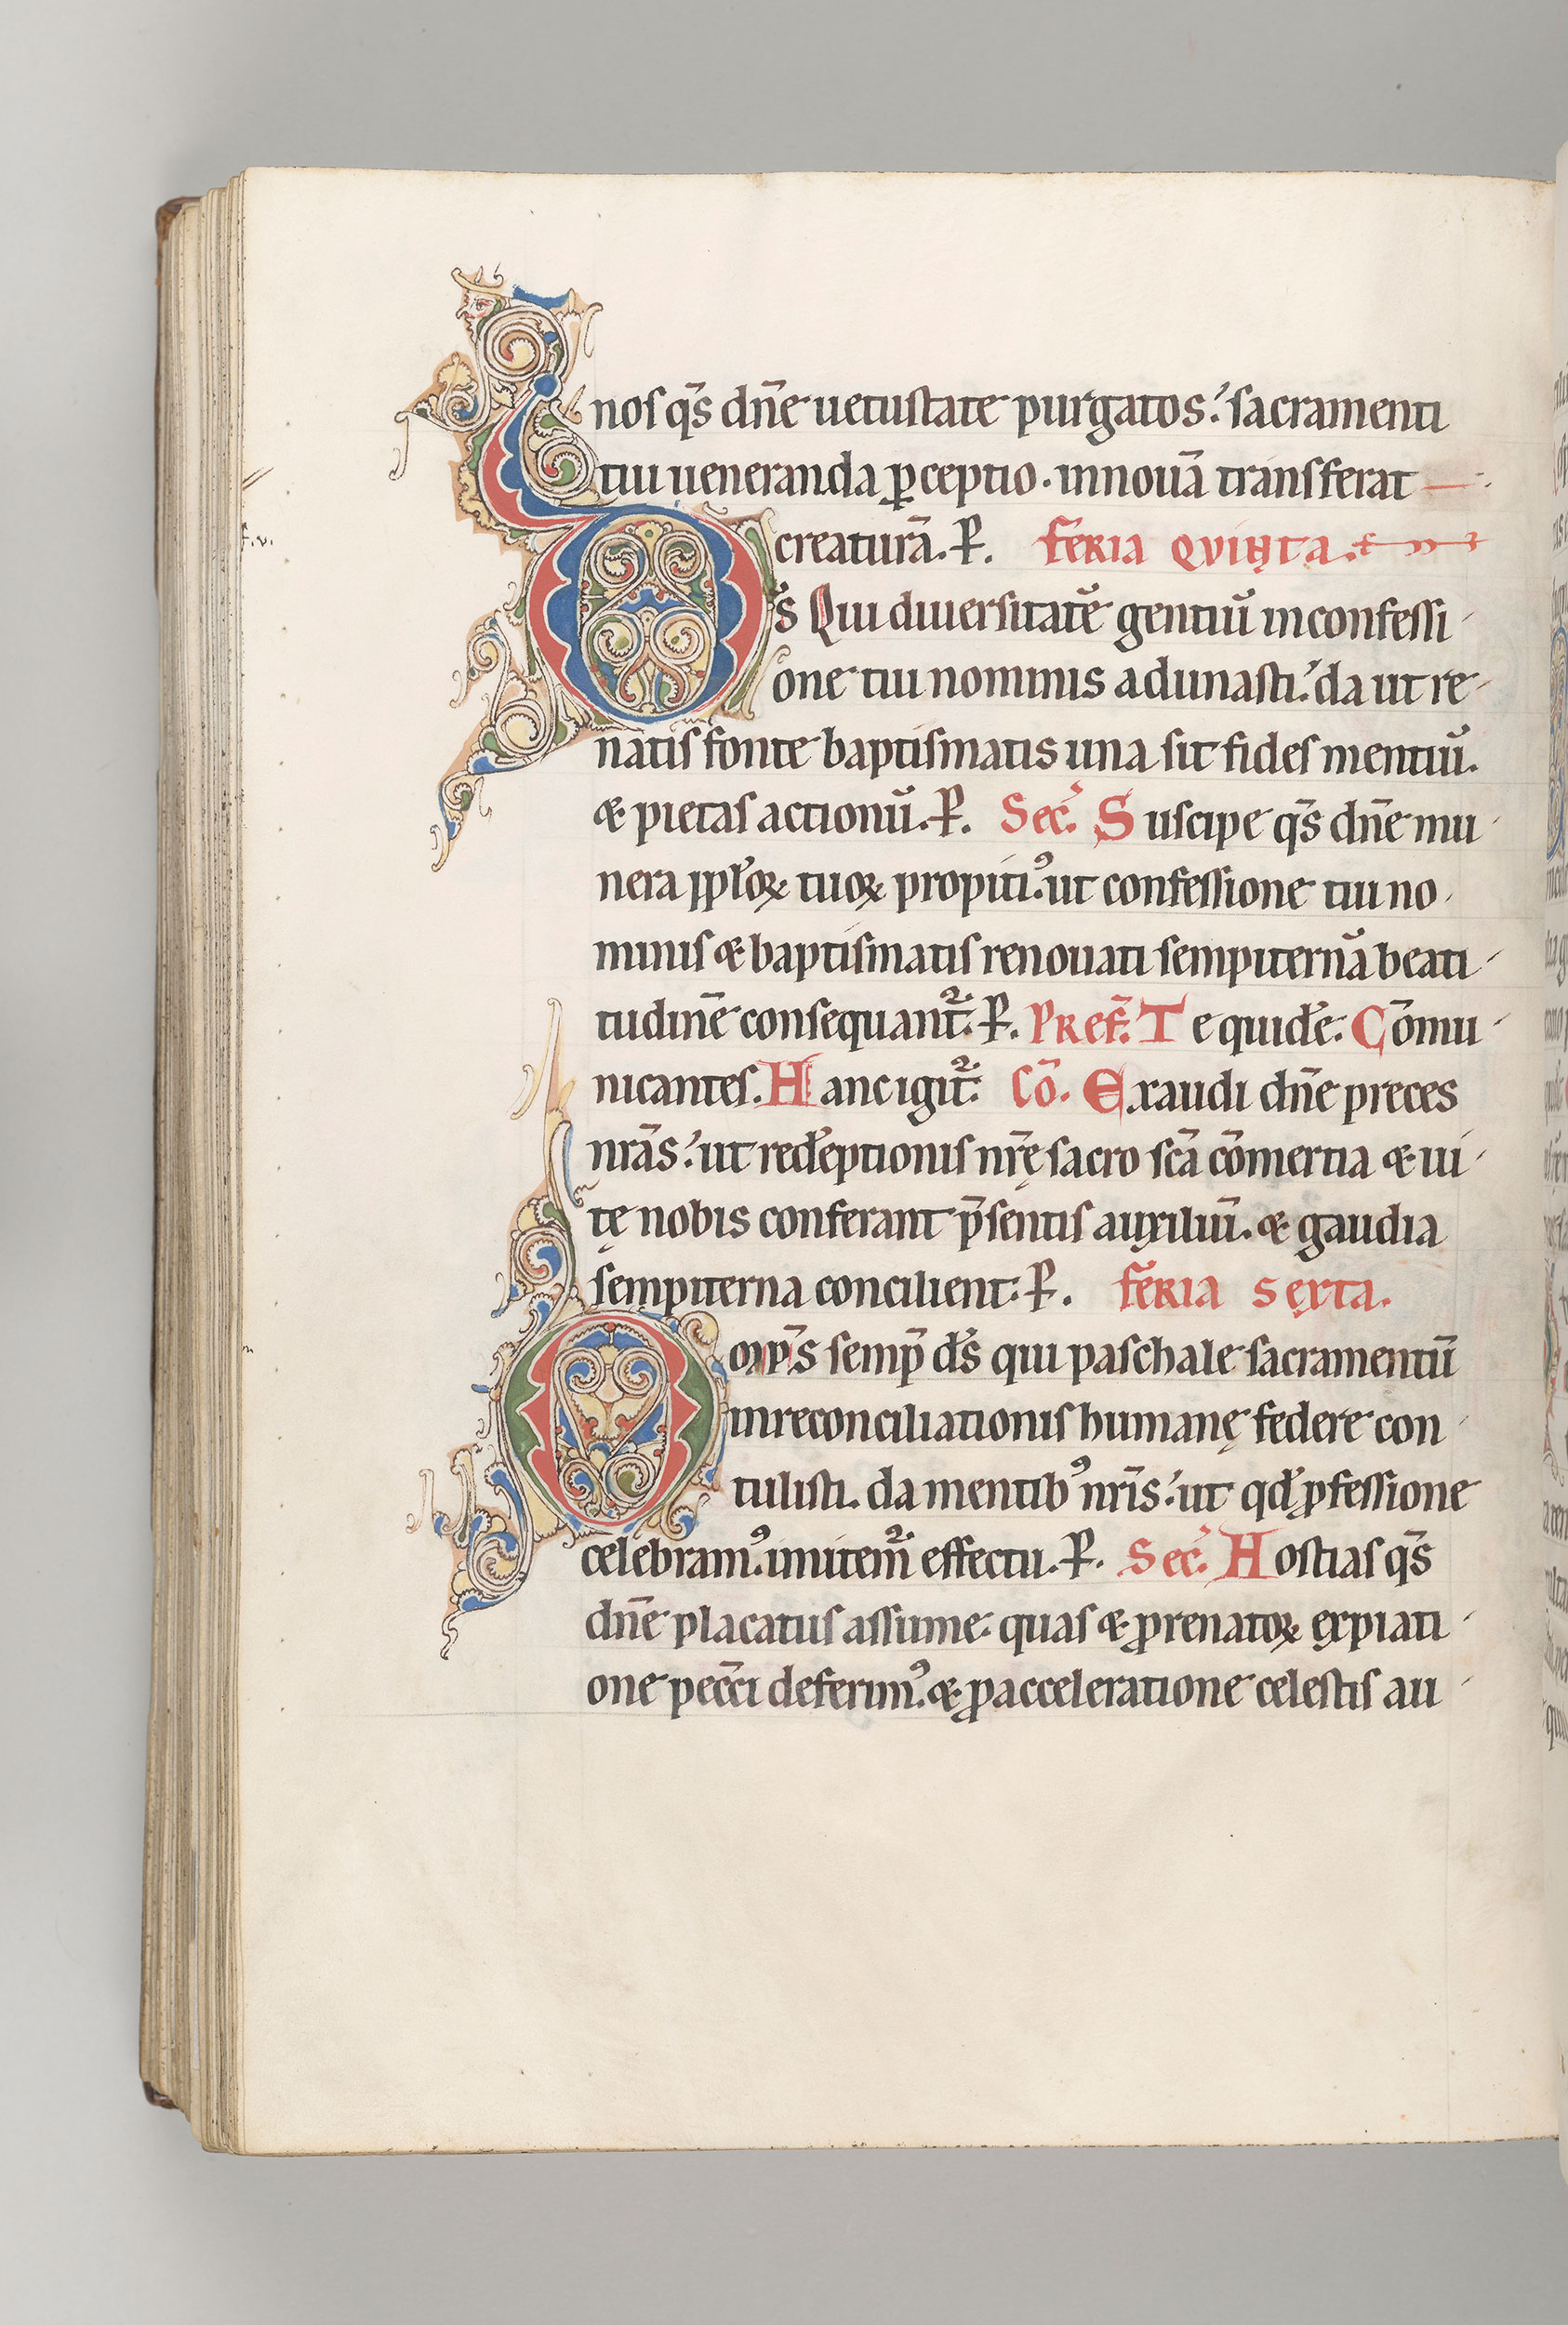 nos q̄s dn̄e uetustate purgatos: sacramenti
tui ueneranda ꝑceptio. innouā transferat
creaturā. P. feria quinta.
D s̄ Qui diuersitatē gentiū inconfessi
one tui nominis adunasti: da ut re
natis fonte baptismatis una sit fides mentiū.
& pietas actionū. P. Sec̄. Suscipe q̄s dn̄e mu
nera pplōꝝ tuoꝝ propitiꝰ. ut confessione tui no
minis & baptismatis renouati sempiternā beati
tudinē consequant᷑. P. Pref̄. Te quidē. Cōmu
nicantes. Hanc igit᷑. Cō. Exaudi dn̄e preces
nr̄as: ut redēptionis nr̄ę sacro sc̄a cōmertia & ui
tę nobis conferant p̄sentis auxiliū. & gaudia
sempiterna concilient. P. feria sexta.
O omp̄s semp̄ ds̄ qui paschale sacramentū
inreconciliationis humanę federe con
tulisti. da mentibꝰ nr̄is: ut qd̄ ꝓfessione
celebramꝰ. imitem᷑ effectu. P. Sec̄. Hostias q̄s
dn̄e placatus assume. quas & ꝓ renatoꝝ expiati
one pecc̄i deferimꝰ. & ꝓ acceleratione celestis au